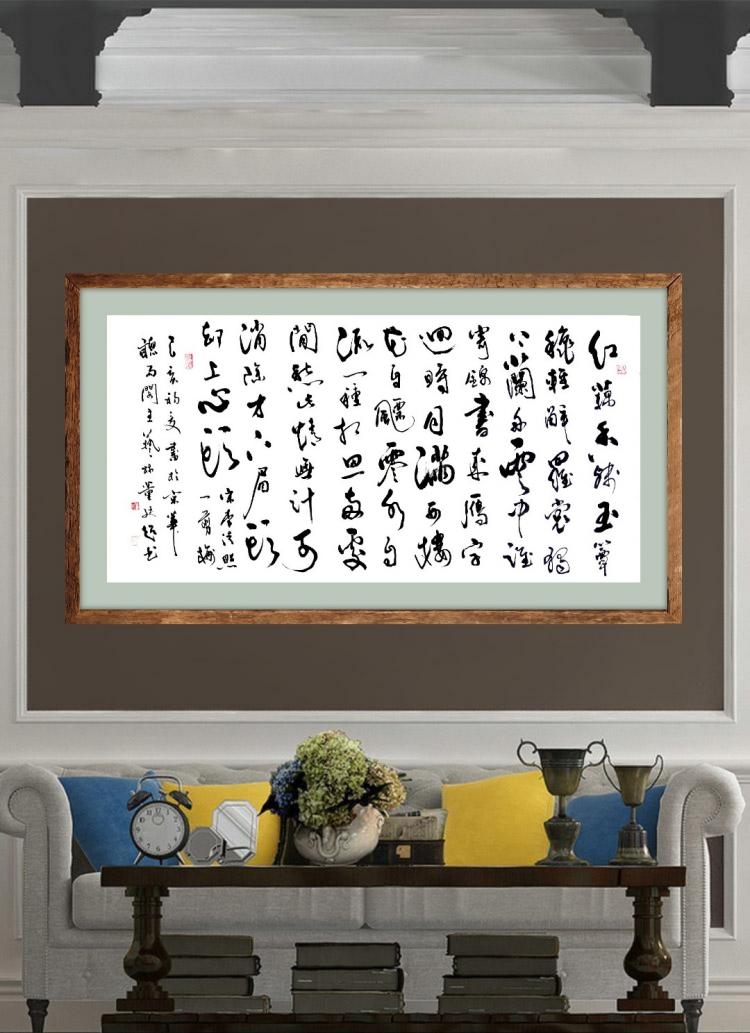 红藕香殘玉簟
秋輕解羅裳獨
上蘭舟雲中誰
寄錦書來雁字
迴時月滿西樓
花自飄零水自
流一種相思兩處
閒愁此情無計可
消除才下眉頭
却上心頭
宋李清照
一剪梅
己亥初夏書於京華
聽雨閣主藝林董書